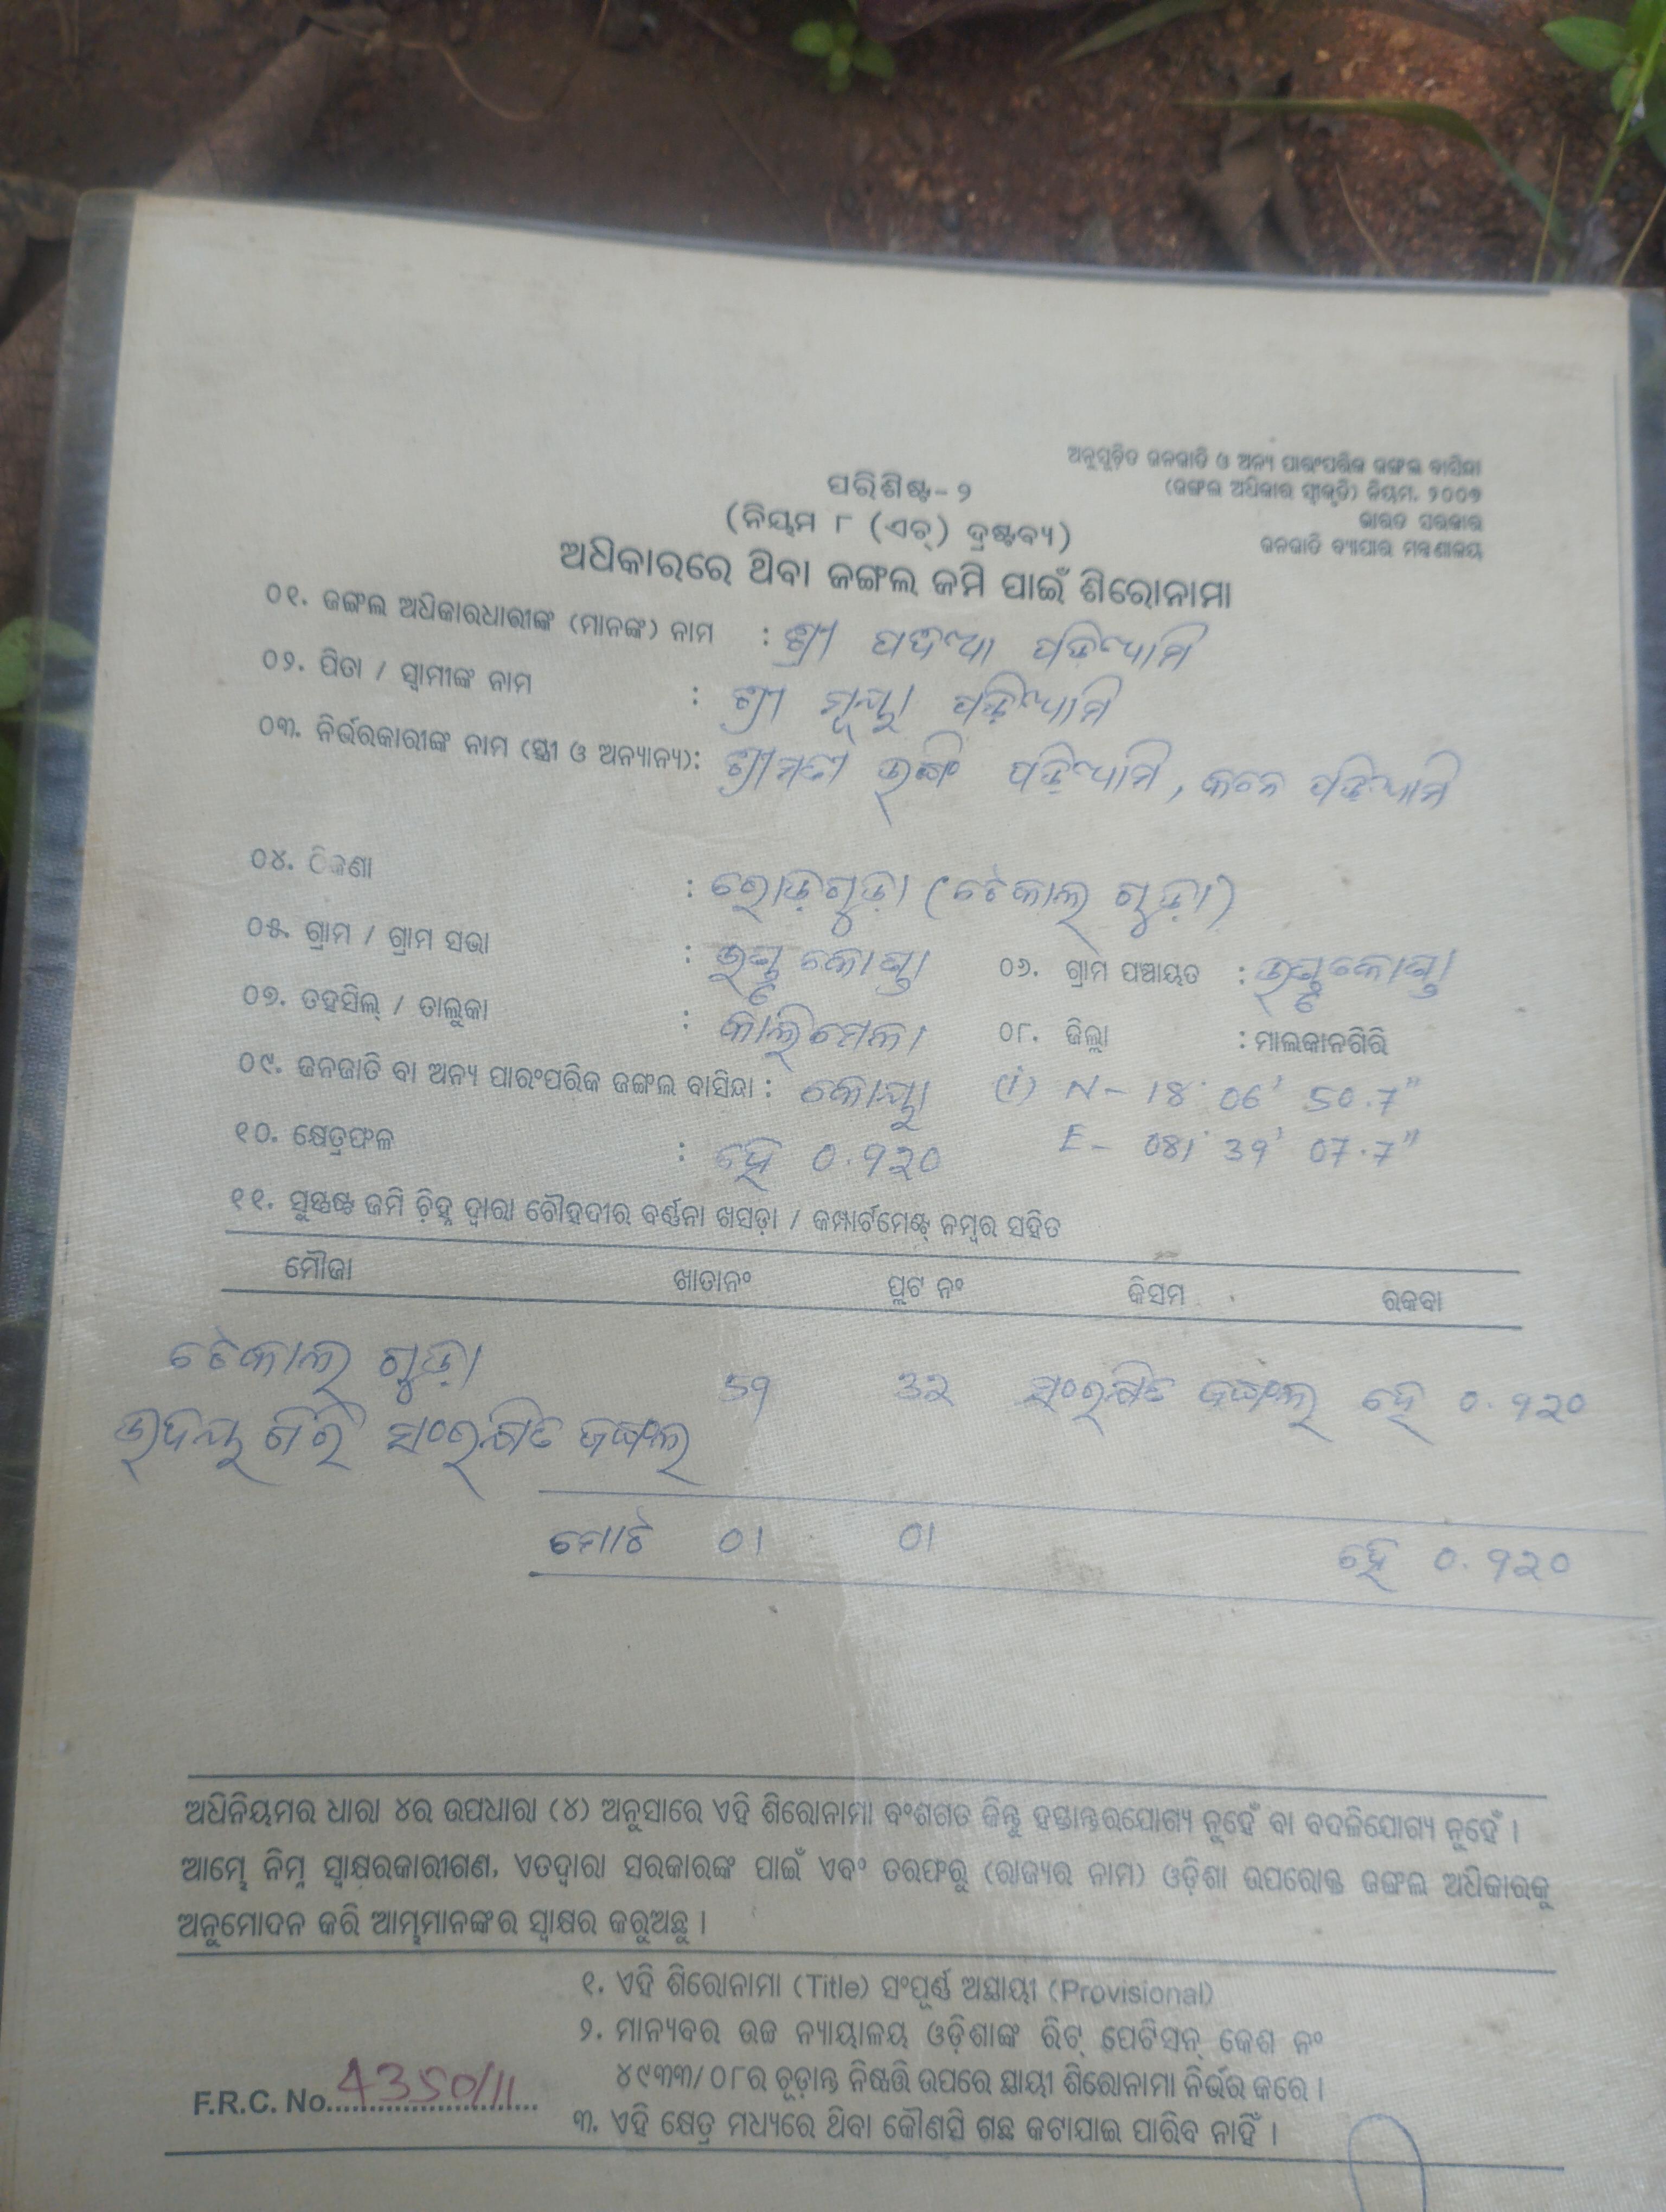 ଅନୁସୂଚିତ ଜନଜାତି ଓ ଅନ୍ୟ ପାରଂପରିକ ଜଙ୍ଗଲ ବାସିନ୍ଦା
(ଜଙ୍ଗଲ ଅଧିକାର ସ୍ୱୀକୃତି) ନିୟମ, ୨୦୦୭
ଭାରତ ସରକାର
ଜନଜାତି ବ୍ୟାପାର ମନ୍ତ୍ରଣାଳୟ
ପରିଶିଷ୍ଟ- ୨
(ନିୟମ ୮ (ଏଚ୍) ଦ୍ରଷ୍ଟବ୍ୟ)
ଅଧିକାରରେ ଥିବା ଜଙ୍ଗଲ ଜମି ପାଇଁ ଶିରୋନାମା
୦୧. ଜଙ୍ଗଲ ଅଧିକାରଧାରୀଙ୍କ (ମାନଙ୍କ) ନାମ : ଶ୍ରୀ ପଡିଆମି
୦୨. ପିତା / ସ୍ୱାମୀଙ୍କ ନାମ : ଶ୍ରୀ ପଡ଼ିଆମି
୦୩. ନିର୍ଭରକାରୀଙ୍କ ନାମ (ସ୍ତ୍ରୀ ଓ ଅନ୍ୟାନ୍ୟ): ଶ୍ରୀମତୀ ପଡ଼ିଆମି, ପଡ଼ିଆମି
୦୪. ଠିକଣା : ରୋଡ଼ଗୁଡ଼ା (ଟେକାଲ୍ ଗୁଡ଼ା)
୦୫. ଗ୍ରାମ / ଗ୍ରାମ ସଭା : ୦୬. ଗ୍ରାମ ପଞ୍ଚାୟତ :
୦୭. ତହସିଲ୍ / ତାଲୁକା : କାଲିମେଳା ୦୮. ଜିଲ୍ଲା : ମାଲକାନଗିରି
୦୯. ଜନଜାତି ବା ଅନ୍ୟ ପାରଂପରିକ ଜଙ୍ଗଲ ବାସିନ୍ଦା : କୋୟା (i) N- 18° 06' 50.7"
୧୦. କ୍ଷେତ୍ରଫଳ : ହେ ୦.୭୨୦ E- 081° 39' 07.7"
୧୧. ସୁସ୍ପଷ୍ଟ ଜମି ଚ଼ିହ୍ନ ଦ୍ୱାରା ଚୌହଦୀର ବର୍ଣ୍ଣନା ଖସଡ଼ା / କମ୍ପାର୍ଟମେଣ୍ଟ୍ ନମ୍ବର ସହିତ
ମୌଜା ଖାତାନଂ ପ୍ଲଟ ନଂ କିସମ ରକବା
ଟେକାଲ୍ ଗୁଡ଼ା ସଂରକ୍ଷିତ ଜଙ୍ଗଲ୍ ହେ ୦.୭୨୦
ଉଦୟ ଗିରି ସଂରକ୍ଷିତ ଜଙ୍ଗଲ
ମୋଟ 01 01 ହେ ୦.୭୨୦
ଅଧିନିୟମର ଧାରା ୪ର ଉପଧାରା (୪) ଅନୁସାରେ ଏହି ଶିରୋନାମା ବଂଶଗତ କିନ୍ତୁ ହସ୍ତାନ୍ତରଯୋଗ୍ୟ ନୁହେଁ ବା ବଦଳିଯୋଗ୍ୟ ନୁହେଁ ।
ଆମ୍ଭେ ନିମ୍ନ ସ୍ୱାକ୍ଷରକାରୀଗଣ, ଏତଦ୍ୱାରା ସରକାରଙ୍କ ପାଇଁ ଏବଂ ତରଫରୁ (ରାଜ୍ୟର ନାମ) ଓଡ଼ିଶା ଉପରୋକ୍ତ ଜଙ୍ଗଲ ଅଧିକାରକୁ
ଅନୁମୋଦନ କରି ଆମ୍ଭମାନଙ୍କର ସ୍ୱାକ୍ଷର କରୁଅଛୁ ।
୧. ଏହି ଶିରୋନାମା (Title) ସଂପୂର୍ଣ୍ଣ ଅସ୍ଥାୟୀ (Provisional)
୨. ମାନ୍ୟବର ଉଚ୍ଚ ନ୍ୟାୟାଳୟ ଓଡ଼ିଶାଙ୍କ ରିଟ୍ ପେଟିସନ୍ କେଶ ନଂ
୪୯୩୩/୦୮ର ଚୂଡ଼ାନ୍ତ ନିଷ୍ପତ୍ତି ଉପରେ ସ୍ଥାୟୀ ଶିରୋନାମା ନିର୍ଭର କରେ ।
F.R.C. No. 4350/11
୩. ଏହି କ୍ଷେତ୍ର ମଧ୍ୟରେ ଥିବା କୌଣସି ଗଛ କଟାଯାଇ ପାରିବ ନାହିଁ ।